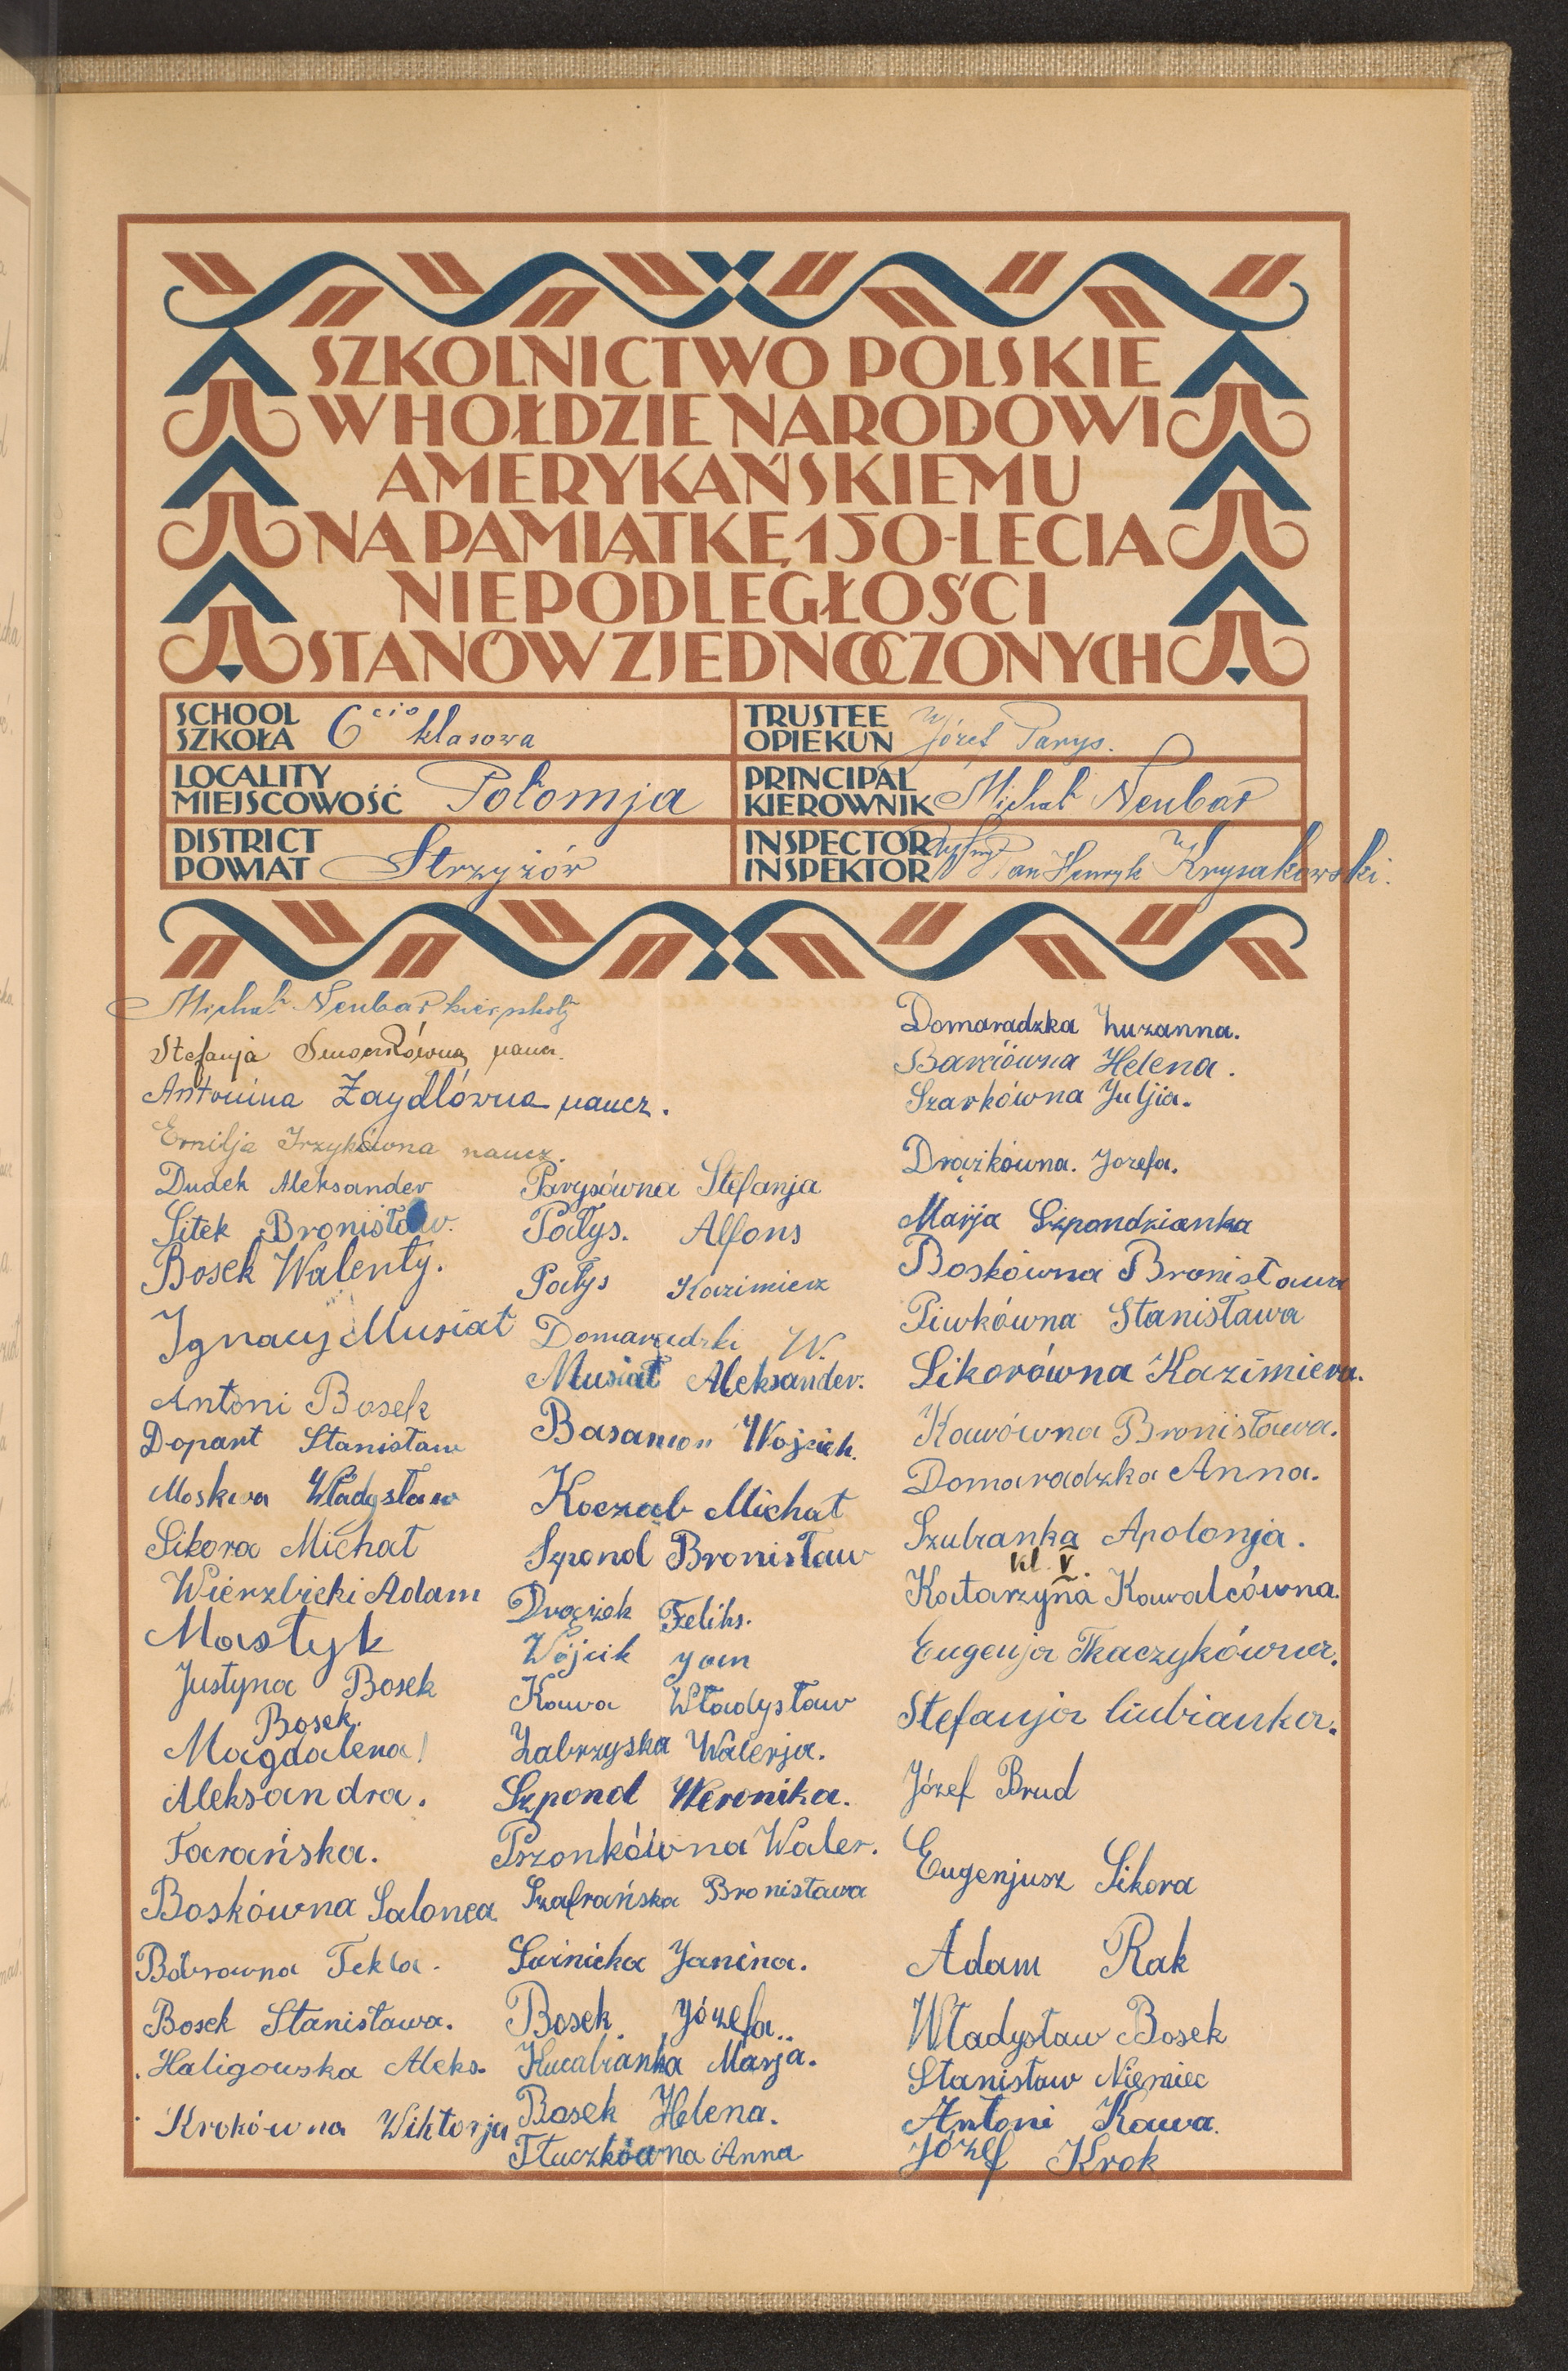 SZKOLNICTWO POLSKIE
W HOŁDZIE NARODOWI
AMERYKAŃSKIEMU
NA PAMIĄTKĘ 150-LECIA
NIEPODLEGŁOŚCI
STANÓW ZJEDNOCZONYCH
SCHOOL
SZKOŁA 6cio klasowa
LOCALITY
MIEJSCOWOŚĆ Połomja
DISTRICT
POWIAT Strzyżów
TRUSTEE
OPIEKUN Józef Parys.
PRINCIPAL
KIEROWNIK Michał Neubar
INSPECTOR
INSPEKTOR Pan Henryk Krysakowski.
Michał Neubar kier. szkoły
Stefanja naucz.
Antonina Zaydlówna naucz.
Emilja Irzykówna naucz.
Dudek Aleksander
Sitek Bronisław.
Bosek Walenty.
Ignacy Musiał
Antoni Bosek
Dopart Stanisław
Moskwa Władysław
Sikora Michał
Wierzbicki Adam
Mastyk
Justyna Bosek
Bosek.
Magdalena!
Aleksandra.
Farańska.
Boskówna Salomea
Bobrowna Tekla.
Bosek Stanisława.
Haligowska Aleks.
Krokówna Wiktorja
Parysówna Stefanja
Patys. Alfons
Patys Kazimierz
Domaradzki W.
Musiał Aleksander.
Basamon Wojciech.
Koczab Michał
Szpond Bronisław
Drążek Feliks.
Wójcik Jan
Kawa Władysław
Zabrzyska Walerja.
Szpond Weronika.
Przonkówna Waler.
Szafrańska Bronisława
Janina.
Bosek Józefa.
Kucabianka Marja.
Bosek Helena.
Tłuczkówna Anna
Domaradzka Zuzanna.
Helena.
Szarkówna Julja.
Drążkówna. Jozefa.
Marja Szpondzianka
Boskówna Bronisława
Piwkówna Stanisława
Sikorówna Kazimiera.
Kawówna Bronisława.
Domaradzka Anna.
Szubranka Apolonja.
kl. V.
Katarzyna Kowalcówna.
Eugenja Tkaczykówna.
Stefanja Ziubianka.
Józef Brud
Eugenjusz Sikora
Adam Rak
Władysław Bosek
Stanisław Niemiec
Antoni Kawa.
Józef Krok